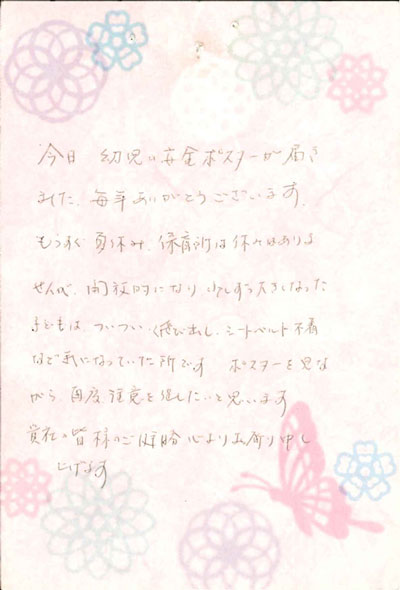 今日 幼児の安全ポスターが届き
ました。毎年ありがとうございます。
もうすぐ夏休み、保育所は休みはありま
せんが、開放的になり 少しずつ大きくなった
子どもは、ついつい 飛び出し、シートベルト不着
など気になっていた所です ポスターを見な
がら、再度注意を促したいと思います
貴社の皆様のご健勝 心よりお祈り申し
上げます